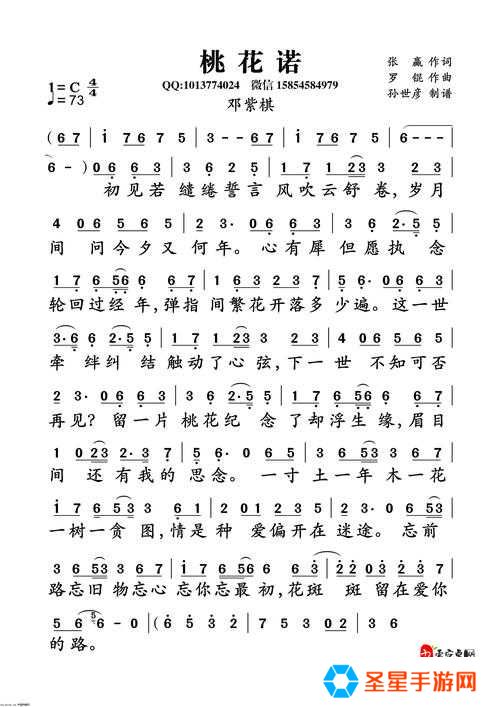 桃花诺
QQ:1013774024 微信 15854584979
邓紫棋
张 赢 作词
罗 锟 作曲
孙世彦 制谱
1=C 4/4
♩=73
(6 7 | i 7675 3 | i 7675 3 |
6 - ) 0663 | 3625 | 171233 | 323
初见若 缱绻誓言 风吹云舒 卷,岁月
4 06565 | 23· | 0663 | 32·55
间 问今夕又 何年。心有犀 但愿执 念
176566 67 | 163237 | 5·6 | 0663
轮回过经 年,弹指 间繁花开落多 少遍。这一世
3·662·55 | 1712332 | 34 | 40565
牵 绊纠 结触动了心 弦,下一世 不知可否
23· | 0663 | 32·55 | 17656 | 67
再见?留一片 桃花纪 念 了却浮生 缘,眉目
1 0232 | 3367 | 56· | 0223 | 3663
间 还有我的 思念。一寸 土一年 木一花
i7653 3 | 61201 | 2523 | 2· | 066
一树一贪 图,情是种 爱偏开在 迷途。忘前
3653 3567 | i7 6566 | 06i | i7653
路忘旧 物忘心 忘你忘最 初,花斑 斑 留在爱你
5 6 6-0 | (6532 | 7532 | 0236
的 路。
圣星手游网